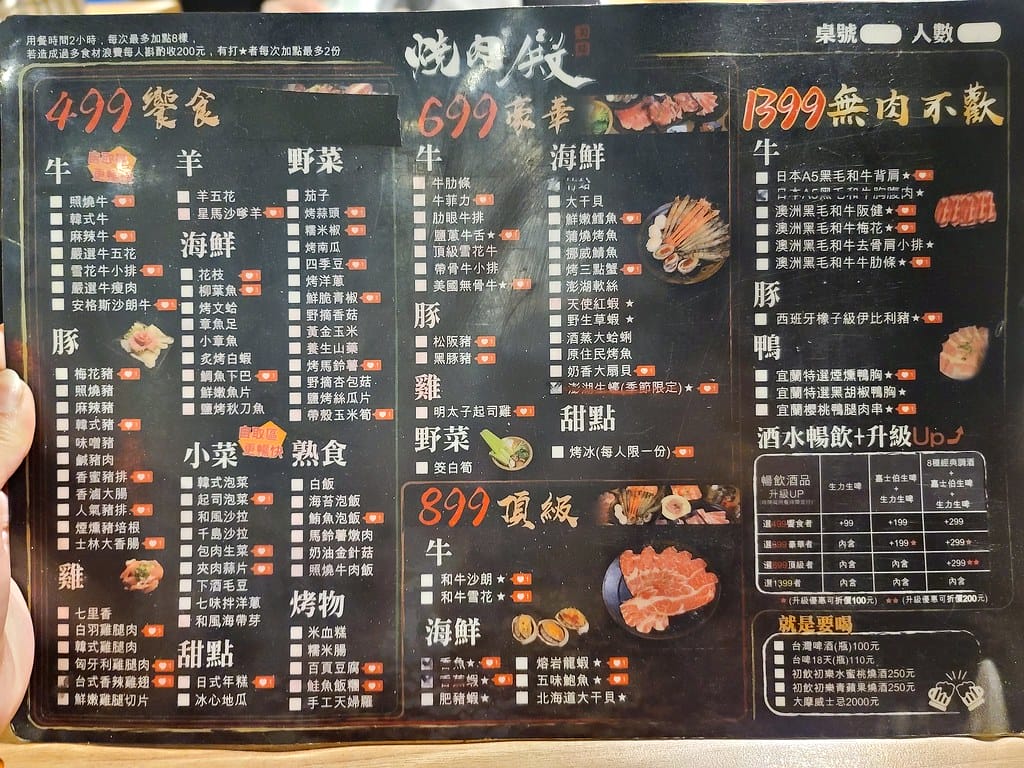 用餐時間2小時，每次最多加點8樣，
若造成過多食材浪費每人斟酌收200元，有打★者每次加點最多2份
燒肉殿
桌號 人數
499饗食
牛
照燒牛
韓式牛
麻辣牛
嚴選牛五花
雪花牛小排
嚴選牛瘦肉
安格斯沙朗牛
豚
梅花豬
照燒豬
麻辣豬
韓式豬
味噌豬
鹹豬肉
香蜜豬排
香滷大腸
人氣豬排
煙燻豬培根
士林大香腸
雞
七里香
白羽雞腿肉
韓式雞腿肉
匈牙利雞腿肉
台式香辣雞翅
鮮嫩雞腿切片
羊
羊五花
星馬沙嗲羊
海鮮
花枝
柳葉魚
烤文蛤
章魚足
小章魚
炙烤白蝦
鯛魚下巴
鮮嫩魚片
鹽烤秋刀魚
小菜
自取區
更暢快
韓式泡菜
起司泡菜
和風沙拉
千島沙拉
包肉生菜
夾肉蒜片
下酒毛豆
七味拌洋蔥
和風海帶芽
甜點
日式年糕
冰心地瓜
野菜
茄子
烤蒜頭
糯米椒
烤南瓜
四季豆
烤洋蔥
鮮脆青椒
野摘香菇
黃金玉米
養生山藥
烤馬鈴薯
野摘杏包菇
鹽烤絲瓜片
帶殼玉米筍
熟食
白飯
海苔泡飯
鮪魚泡飯
馬鈴薯燉肉
奶油金針菇
照燒牛肉飯
烤物
米血糕
糯米腸
百頁豆腐
鮭魚飯糰
手工天婦羅
699豪華
牛
牛肋條
牛菲力
肋眼牛排
鹽蔥牛舌★
頂級雪花牛
帶骨牛小排
美國無骨牛★
豚
松阪豬
黑豚豬
雞
明太子起司雞
野菜
筊白筍
海鮮
大干貝
鮮嫩鱈魚
蒲燒烤魚
挪威鯖魚
烤三點蟹
澎湖軟絲
天使紅蝦★
野生草蝦★
酒蒸大蛤蜊
原住民烤魚
奶香大扇貝
澎湖生蠔(季節限定)★
甜點
烤冰(每人限一份)
899頂級
牛
和牛沙朗★
和牛雪花★
海鮮
香魚★
香蕉蝦★
肥豬蝦★
熔岩龍蝦★
五味鮑魚★
北海道大干貝★
1399無肉不歡
牛
日本A5黑毛和牛背肩★
日本A5黑毛和牛胸腹肉★
澳洲黑毛和牛阪健★
澳洲黑毛和牛梅花★
澳洲黑毛和牛去骨肩小排★
澳洲黑毛和牛牛肋條★
豚
西班牙橡子級伊比利豬★
鴨
宜蘭特選煙燻鴨胸
宜蘭特選黑胡椒鴨胸
宜蘭櫻桃鴨腿肉串★
酒水暢飲+升級Up
暢飲酒品
升級UP
生力生啤
嘉士伯生啤
+
生力生啤
8種經典調酒
+
嘉士伯生啤
+
生力生啤
選499饗食者 +99 +199 +299
選699豪華者 內含 +199★ +299★
選899頂級者 內含 內含 +299★★
選1399者 內含 內含 內含
★(升級優惠可折價100元) ★★(升級優惠可折價200元)
就是要喝
台灣啤酒(瓶)100元
台啤18天(瓶)110元
初飲初樂水蜜桃燒酒250元
初飲初樂青蘋果燒酒250元
大摩威士忌2000元